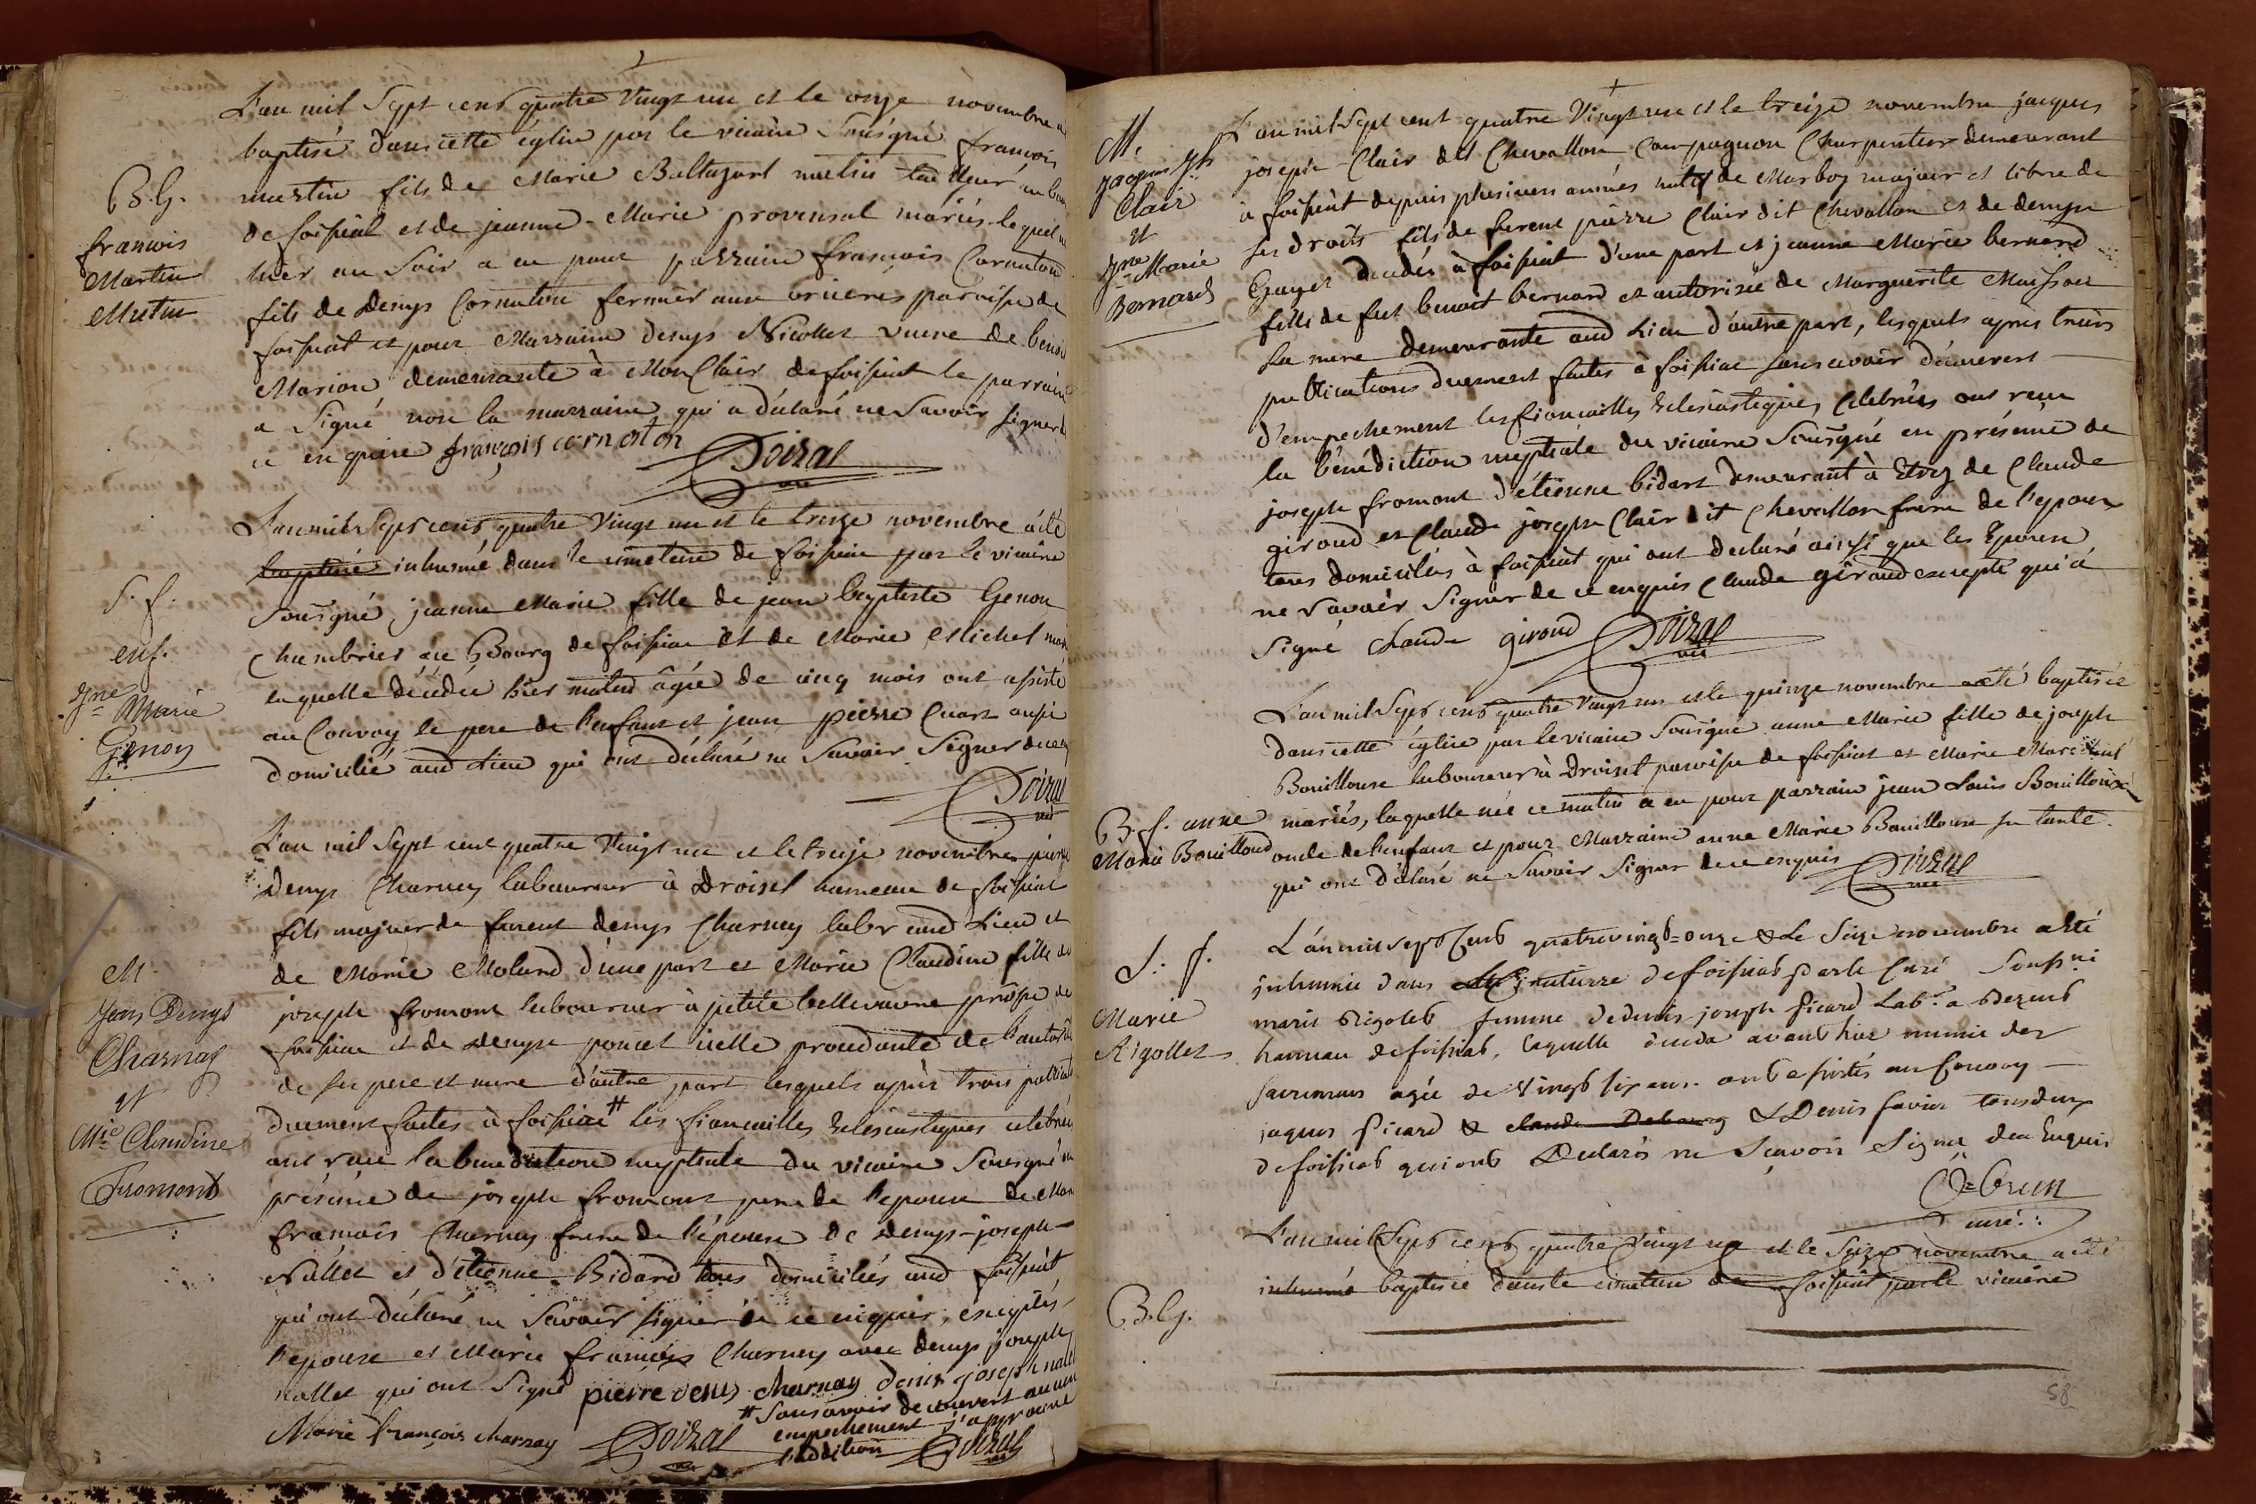 L'an mil Sept cens quatre Vingt un et le onze novembre a
baptisé dans cette église par le vicaire Sousigné francois
B. G.
francois
Martin
Mutin
martin fils de Marie Baltazard mutin tailleur au bou
de foissiat et de jeanne Marie provensal mariés lequel n
hier au Soir a eu pour parrain francois Cornaton
fils de Denys Cornaton fermier aux orcieres paroisse de
foissiat et pour Marraine denyse Nicollet veuve de benoi
Marion demeurante à MonClair de foissiat le parrain
a Signé non la marraine qui a déclaré ne Savoir signer d
ce enquise françois cornaton
Poizat
vic
L'an mil Sept cens quatre Vingt un et le treize novembre a été
baptisé inhumé dans le cimetiere de foissiat par le vicaire
S. f.
enf.
Jne Marie
Genon
Sousigné jeanne Marie fille de jean baptiste Genon
Chambrier au Bourg de foissiat et de Marie Michel mar
laquelle décédée hier matin âgée de cinq mois ont assisté
au Convoy le pere de l'enfant et jean pierre Cuart aussi
domicilié aud Lieu qui ont déclaré ne Savoir Signer de ce enq
Poizat
vic
L'an mil Sept cent quatre Vingt un et le treize novembre pierre
Denys Charnay laboureur à Droiset hameau de foissiat
fils majeur de furent denys Charnay labr aud Lieu et
M
Denys
Charnay
et
Mie Claudine
Fromont
de Marie Moland d'une part et Marie Claudine fille de
joseph fromont laboureur à petite bellevavre proisse de
foissiat et de denyse poncet icelle procedante de l'autorité
de ses pere et mere d'autre part lesquels après trois publicat
duement faites à foissiat # les fiancailles Eclesiastiques celebrées
ont reçu la benediction nuptiale du vicaire Sousigné en
présence de joseph fromont pere de l'epouse de Marie
francois Charnay frere de l'époux de denys-joseph
Nallet et d'étienne Bidard tous domiciliés aud foissiat
qui ont déclaré ne Savoir signer de ce enquis, exceptés
l'epoux et Marie francois Charnay avec denys joseph
nallet qui ont Signé pierre denis charnay denis joseph nalet
# sans avoir découvert aucun
empechement j'approuve
l'addition Poizat
vic
Marie françois charnay Poizat
vic
M.
jacques jph
Clair
et
Jne Marie
Bernard
L'an mil Sept cent quatre Vingt un et le treize novembre jacques
joseph Clair dit Chevallon Compagnon Charpentier demeurant
à foissiat depuis plusieurs années natif de Marboz majeur et libre de
ses droits fils de furent pierre Clair dit Chevallon et de denyse
Gayet decedés à foissiat d'une part et jeanne Marie bernard
fille de fut benoit bernard et autorisée de Marguerite Maisson
sa mere demeurante aud Lieu d'autre part, lesquels apres trois
publications duement faites à foissiat sans avoir découvert
d'empechement les fiancailles Eclesiastiques celebrées ont recu
la bénédiction nuptiale du vicaire Sousigné en présence de
joseph fromont d'étienne bidard demeurant à Etrez de Claude
giroud et Claude joseph Clair dit Chevallon frere de l'epoux
tous domiciliés à foissiat qui ont declaré ainsi que les Epoux
ne Savoir Signer de ce enquis Claude giroud excepté qui a
Signé claude giroud Poizat
vic
L'an mil Sept cens quatre Vingt un et le quinze novembre a été baptisée
dans cette église par le vicaire Sousigné anne Marie fille de joseph
Bouilloux laboureur à Droiset paroisse de foissiat et Marie
B. f. anne
Marie Bouilloud
mariés, laquelle née ce matin a eu pour parrain jean Louis Bouilloux
oncle de l'enfant et pour Marraine anne Marie Bouilloux sa tante
qui ont déclaré ne Savoir Signer de ce enquis Poizat
vic
S. f.
Marie
Rigollet
L'an mil sept Cens quatrevingt-onze & Le Seize novembre a Eté
inhumée dans Le Cimetiere de foissiat par le Curé Soussigné
marie Rigolet femme de denis joseph Picard Labr. a
hameau de foissiat, laquelle deceda avant hier munie des
Sacremens agée de Vingt six ans. ont assistés au Convoy
jaques Picard & claude Debourg & Denis favier tous deux
de foissiat qui ont Declarés ne Scavoir Signer de ce Enquis
Debrun
curé.
B. G.
L'an mil Sept cens quatre Vingt un et le Seize novembre a été
inhumé baptisée dans le cimetiere de foissiat par le vicaire
58